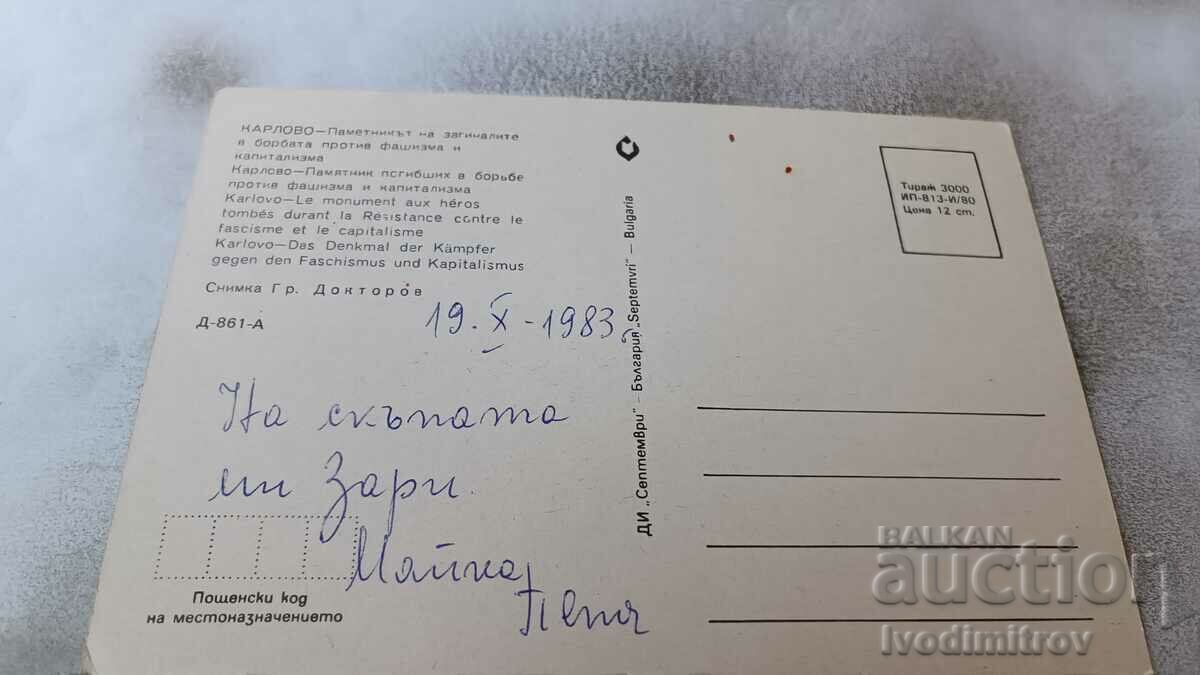 КАРЛОВО—Паметникът на загиналите
в борбата против фашизма и
капитализма
Карлово—Памятник погибших в борьбе
против фашизма и капитализма
Karlovo—Le monument aux héros
tombés durant la Résistance contre le
fascisme et le capitalisme
Karlovo—Das Denkmal der Kämpfer
gegen den Faschismus und Kapitalismus
Снимка Гр. Докторов
Д-861-А
19.X-1983
На скъпата
ми Зари.
Майка
Пепа
Пощенски код
на местоназначението
ДИ „Септември" — България „Septemvri" — Bulgaria
Тираж 3000
ИП-813-И/80
Цена 12 ст.
BALKAN
auction
Ivodimitrov